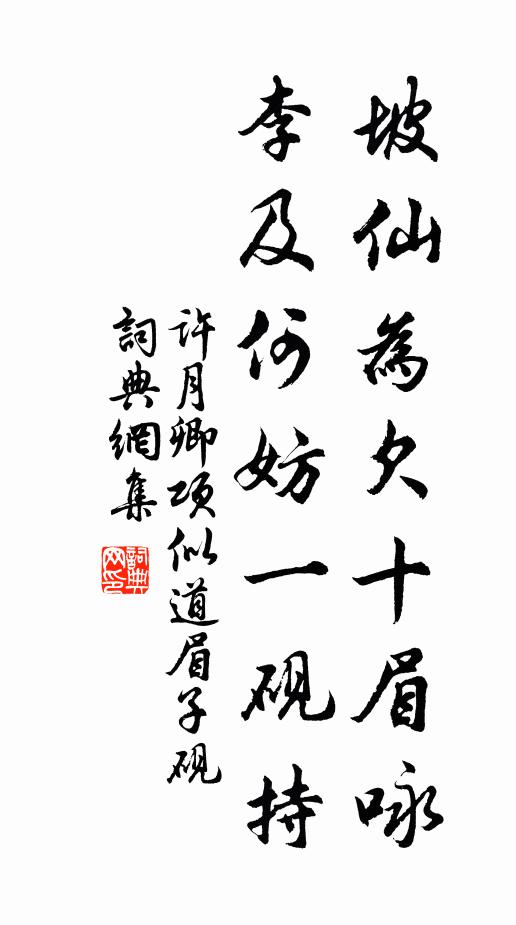 坡仙為欠十眉咏
李及何妨一砚持
许月卿项似道眉子砚
詞典網集
詞典网印